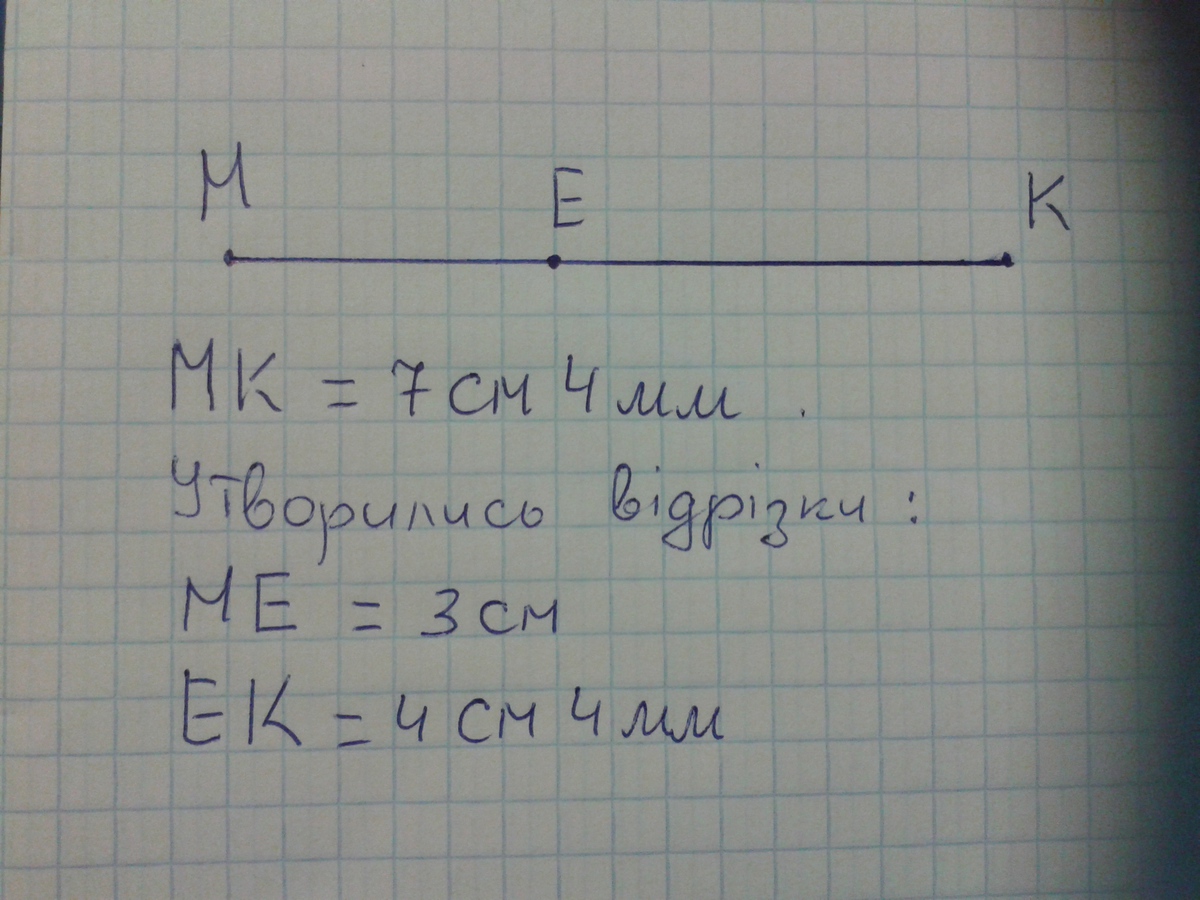 М Е К
МК = 7 см 4 мм .
Утворились відрізки :
МЕ = 3 см
ЕК = 4 см 4 мм